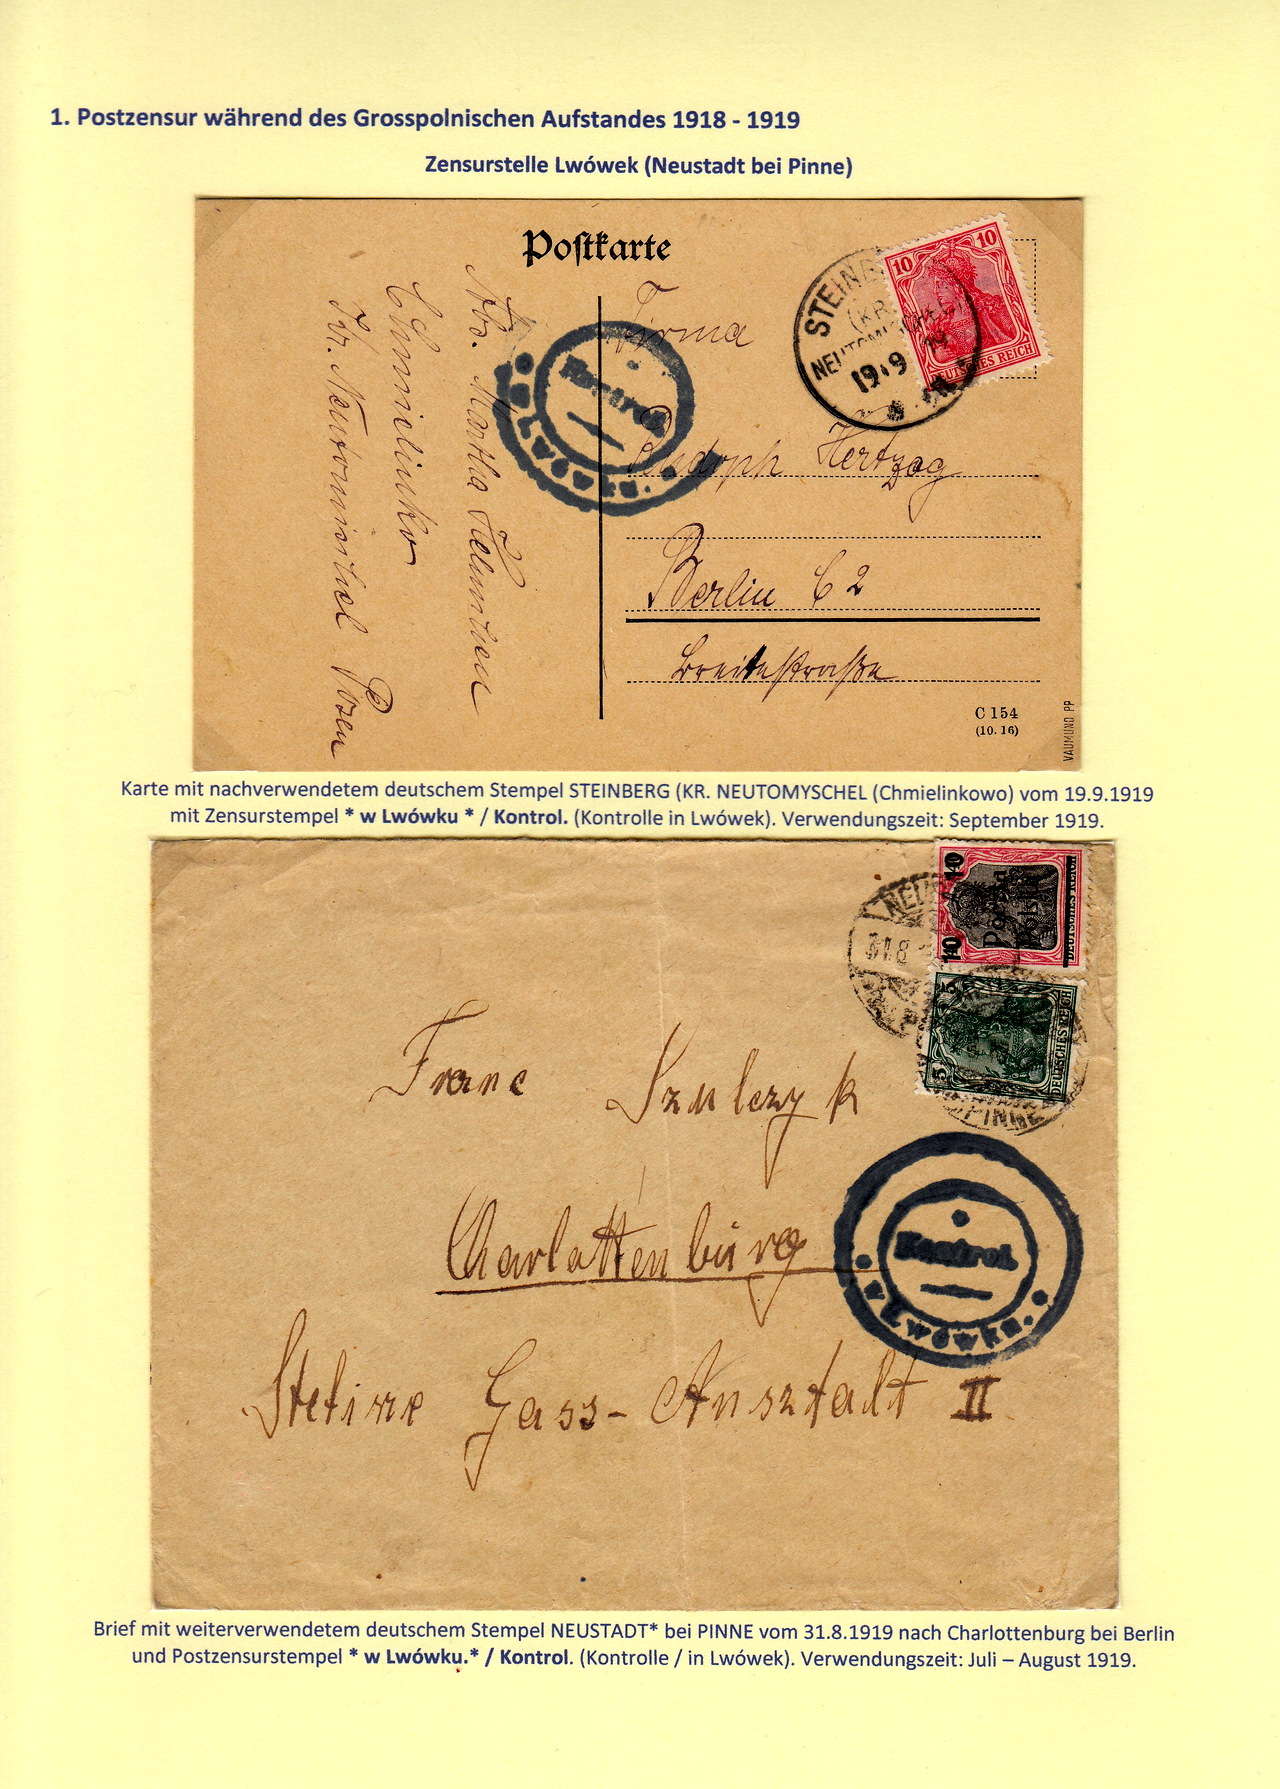 1. Postzensur während des Grosspolnischen Aufstandes 1918 - 1919
Zensurstelle Lwówek (Neustadt bei Pinne)
Postkarte
Abs. Martha
Kr. Neutomischel Posen
Firma
Rudoph Hertzog
Berlin C 2
Breitestraße
Kontrol.
w Lwówku.
STEINB
(KR.
NEUTOMYSCHEL)
19.9 19
10 10
DEUTSCHES REICH
C 154
(10. 16)
VAUMUND PP
Karte mit nachverwendetem deutschem Stempel STEINBERG (KR. NEUTOMYSCHEL (Chmielinkowo) vom 19.9.1919
mit Zensurstempel * w Lwówku * / Kontrol. (Kontrolle in Lwówek). Verwendungszeit: September 1919.
NEU
31.8
10 10
Poczta
Polska
DEUTSCHES REICH
5 5
DEUTSCHES REICH
PINNE
Franc Szulczyk
Charlottenburg
Kontrol.
w Lwówku.
Gass-Ansztadt II
Brief mit weiterverwendetem deutschem Stempel NEUSTADT* bei PINNE vom 31.8.1919 nach Charlottenburg bei Berlin
und Postzensurstempel * w Lwówku.* / Kontrol. (Kontrolle / in Lwówek). Verwendungszeit: Juli – August 1919.